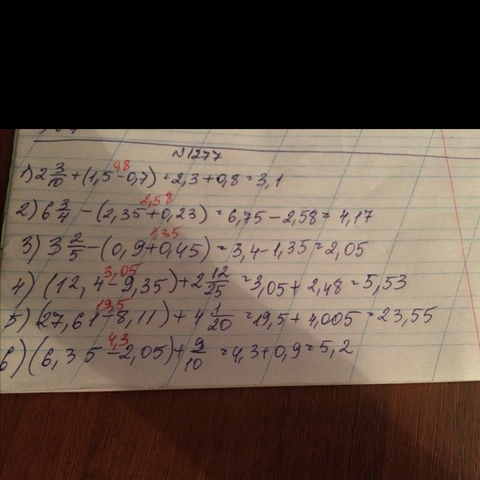 №1277
0,8
1) 2 3/10 + (1,5 - 0,7) = 2,3 + 0,8 = 3,1
2,58
2) 6 3/4 - (2,35 + 0,23) = 6,75 - 2,58 = 4,17
1,35
3) 3 2/5 - (0,9 + 0,45) = 3,4 - 1,35 = 2,05
3,05
4) (12,4 - 9,35) + 2 12/25 = 3,05 + 2,48 = 5,53
19,5
5) (27,61 - 8,11) + 4 1/20 = 19,5 + 4,005 = 23,55
4,3
6) (6,35 - 2,05) + 9/10 = 4,3 + 0,9 = 5,2